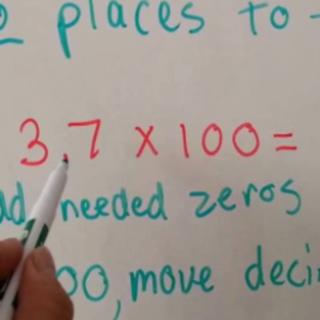 places to
3.7 x 100 =
needed zeros
00, move deci